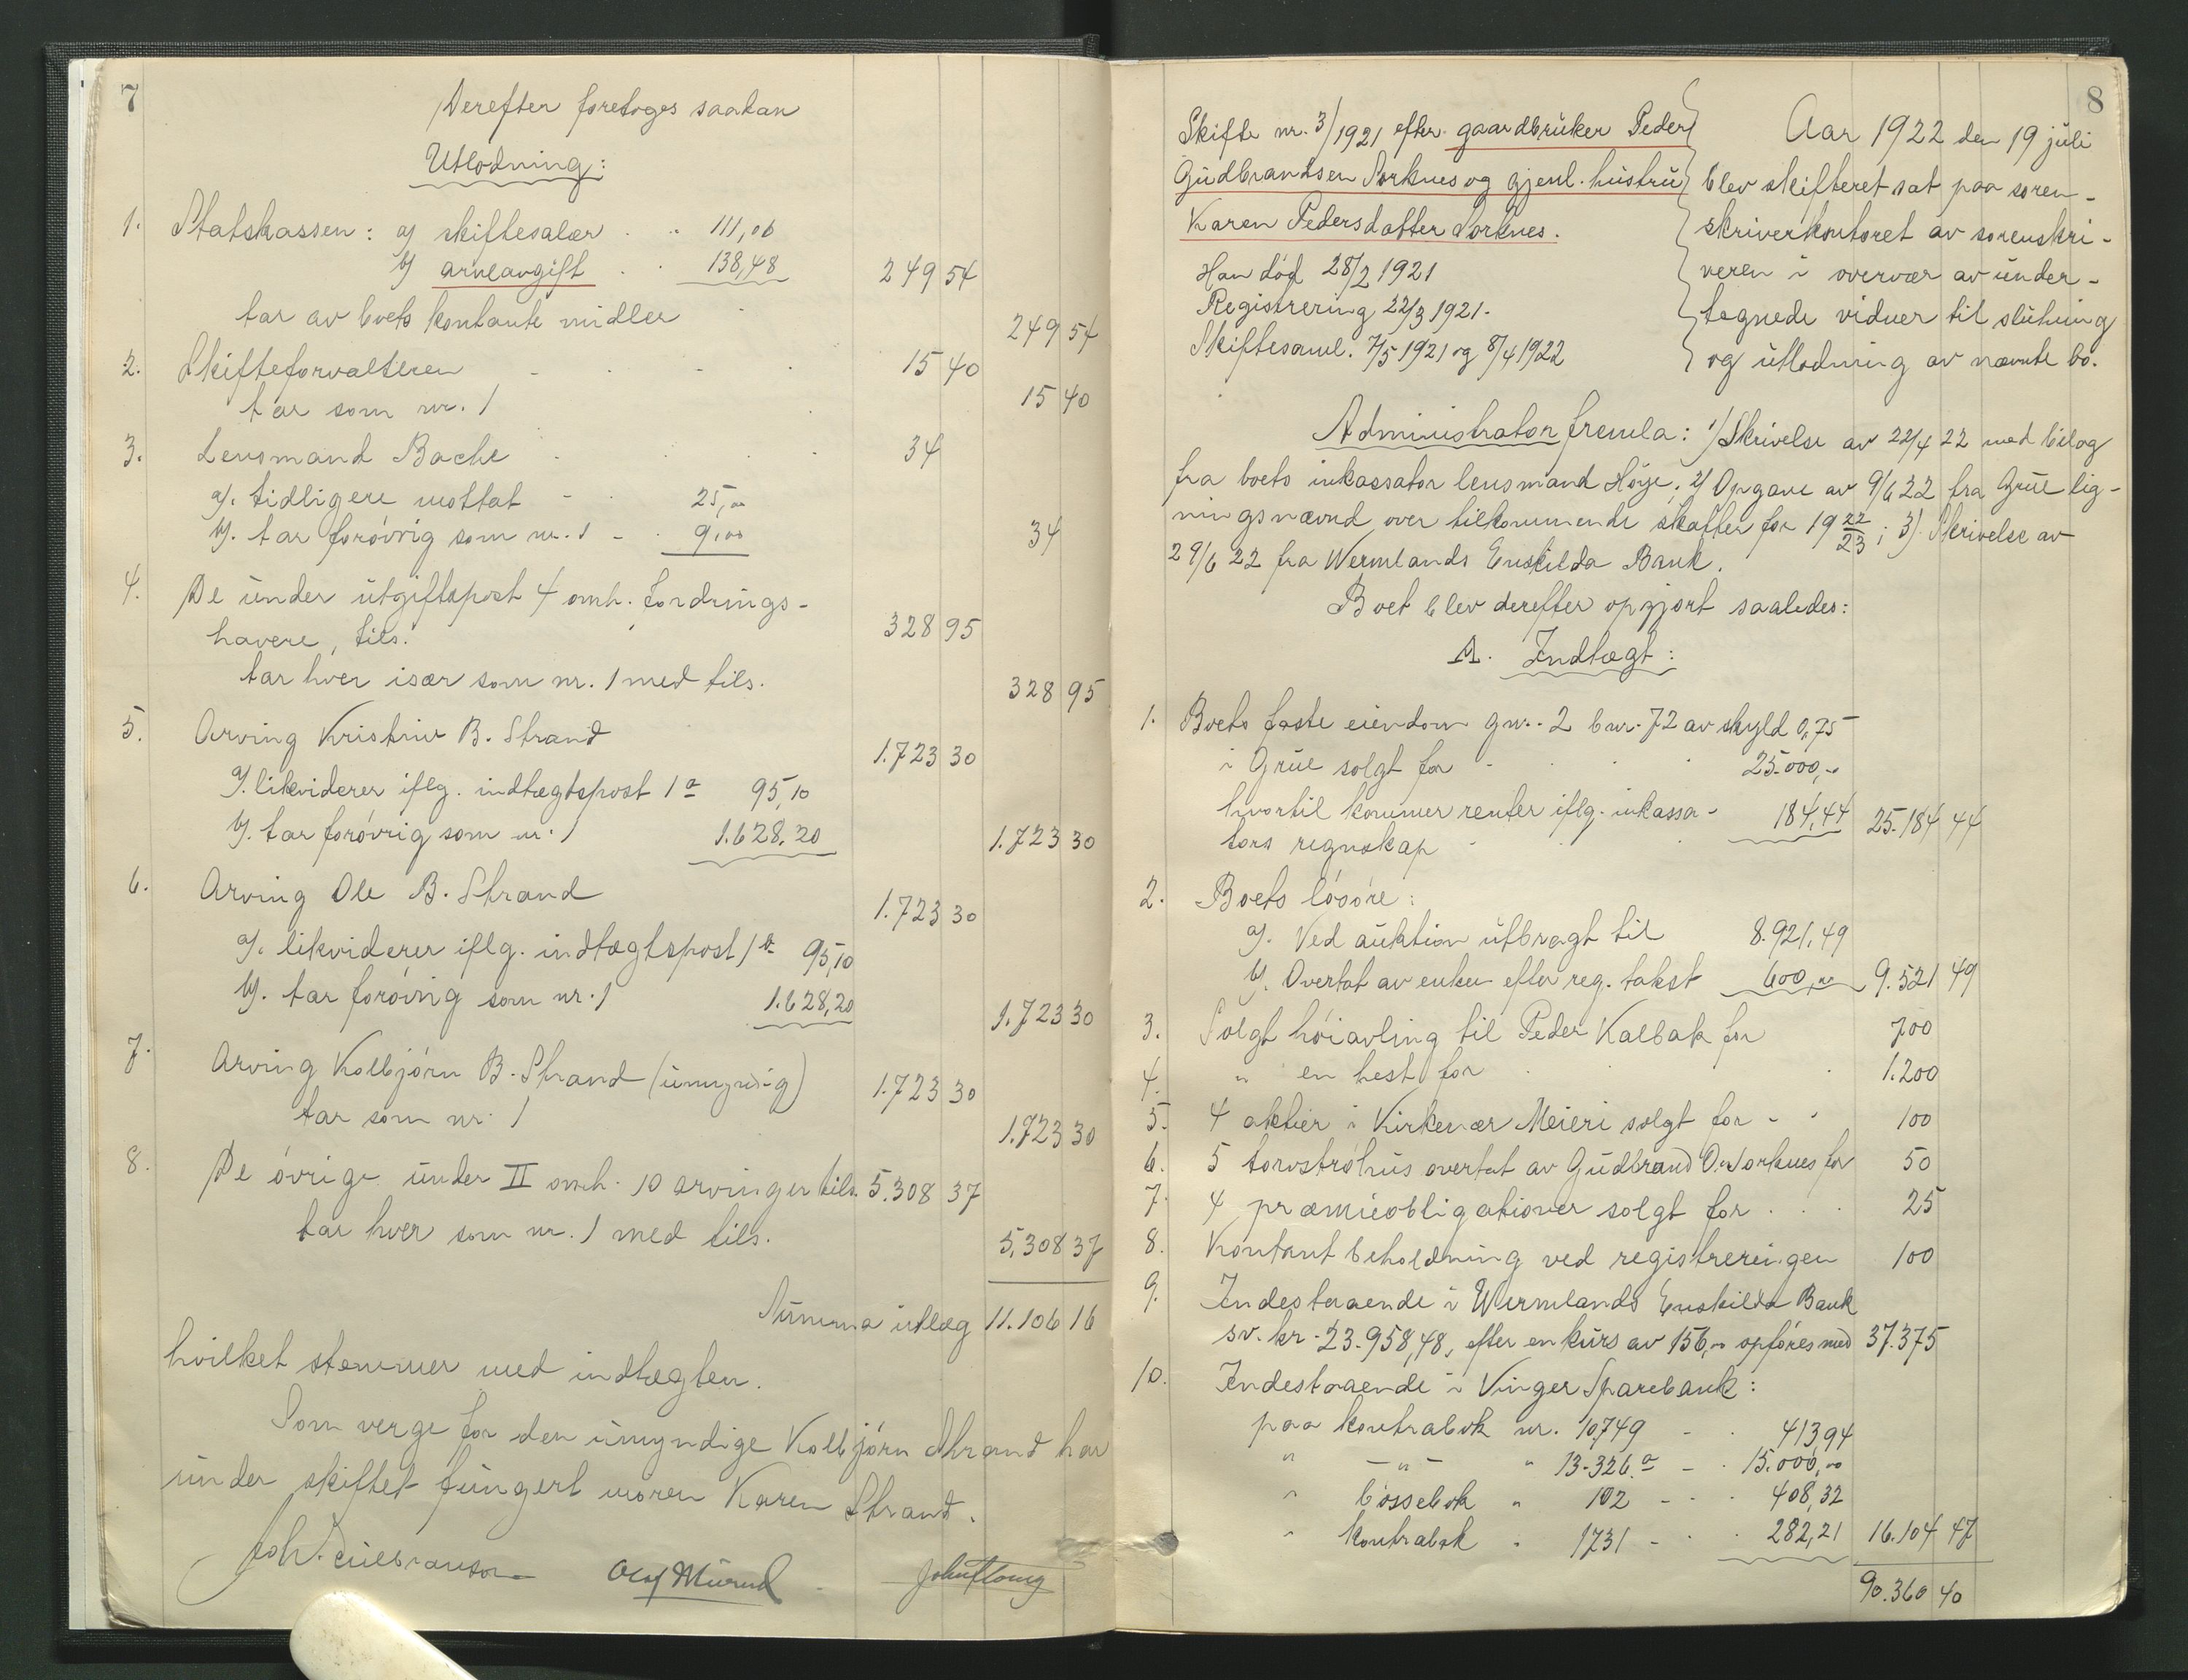 7
Derefter foretoges saadan
Utlodning:
1. Statskassen: a) skiftesalær 111,06
b) arveavgift 138,48 249 54
tar av boets kontante midler 249 54
2. Skifteforvalteren 15 40
tar som nr. 1 15 40
3. Lensmand Bache 34
a). tidligere mottat 25,00
b). tar forøvrig som nr. 1 9,00 34
4. De under utgiftspost 4 omh. fordrings-
havere, tils. 328 95
tar hver især som nr. 1 med tils. 328 95
5. Arving Kristine B. Strand 1.723 30
a). likviderer iflg. indtægtspost 1a 95,10
b). tar forøvrig som nr. 1 1.628,20 1.723 30
6. Arving Ole B. Strand 1.723 30
a). likviderer iflg. indtægtspost 1a 95,10
b). tar forøvrig som nr. 1 1.628,20 1.723 30
7. Arving Kolbjørn B. Strand (umyndig) 1.723 30
tar som nr. 1 1.723 30
8. De øvrige under II omh. 10 arvinger tils. 5.308 37
tar hver som nr. 1 med tils. 5.308 37
Summa utlæg 11.106 16
hvilket stemmer med indtægten.
Som verge for den umyndige Kolbjørn Strand har
under skiftet fungert moren Karen Strand.
Olaf Murud
8
Skifte nr. 3/1921 efter gaardbruker Peder
Gudbrandsen Sorknes og gjenl. hustru
Karen Pedersdatter Sorknes.
Han død 28/2 1921
Registrering 22/3 1921.
Skiftesaml. 7/5 1921 og 8/4 1922
Aar 1922 den 19 juli
blev skifteret sat paa soren-
skriverkontoret av sorenskri-
veren i overvær av under-
tegnede vidner til slutning
og utlodning av nævnte bo.
Administrator fremla: 1) Skrivelse av 22/4 22 med bilag
fra boets inkassator lensmand Høye; 2) Opgave av 9/6 22 fra Grue lig-
ningsnævnd over tilkommende skatter for 19 22/23; 3) Skrivelse av
29/6 22 fra Wermlands Enskilda Bank.
Boet blev derefter opgjort saaledes:
A. Indtægt:
1. Boets faste eiendom gnr. 2 bnr. 72 av skyld 0,75
i Grue solgt for 25.000,00
hvortil kommer renter iflg. inkassa- 184,44 25.184 44
tors regnskap
2. Boets løsøre:
a). Ved auktion utbragt til 8.921,49
b). Overtat av enken efter reg. takst 600,00 9.521 49
3. Solgt høiavling til Peder Kalbak for 700
4. " en hest for 1.200
5. 4 aktier i Kirkenær Meieri solgt for 100
6. 5 torvstrøhus overtat av Gudbrand O. Sorknes for 50
7. 4 præmieobligationer solgt for 25
8. Kontant beholdning ved registreringen 100
9. Indestaaende i Wermlands Enskilda Bank
sv. kr. 23.958,48, efter en kurs av 156,00 opføres med 37.375
10. Indestaaende i Vinger Sparebank:
paa kontrabok nr. 10749 413,94
" -"- " 13.326a 15.000,00
" bøssebok " 102 408,32
" kontrabok " 1731 282,21 16.104 47
90.360 40